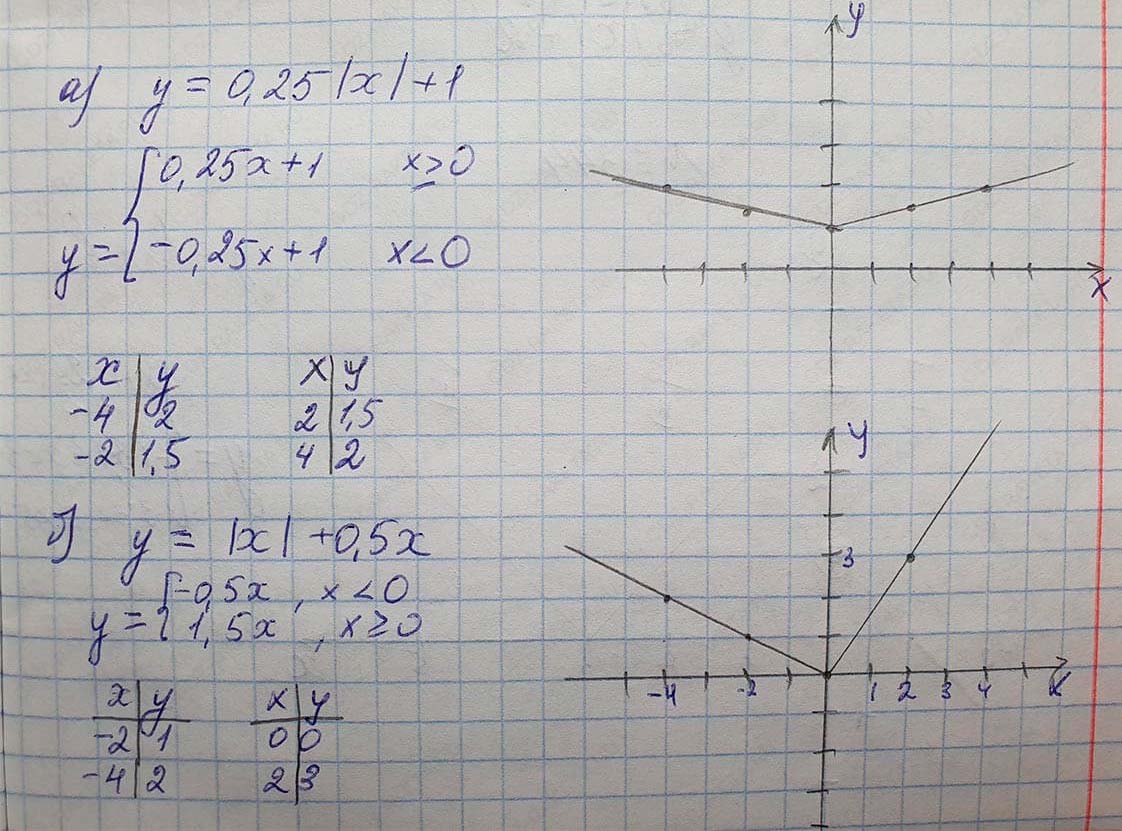 а) y = 0,25|x|+1
0,25x+1 x≥0
y={ -0,25x+1 x<0
x | y x | y
-4 | 2 2 | 1,5
-2 | 1,5 4 | 2
б) y = |x|+0,5x
-0,5x, x<0
y={ 1,5x, x≥0
x | y x | y
-2 | 1 0 | 0
-4 | 2 2 | 3
y
x
y
3
-4 -2 1 2 3 4 x